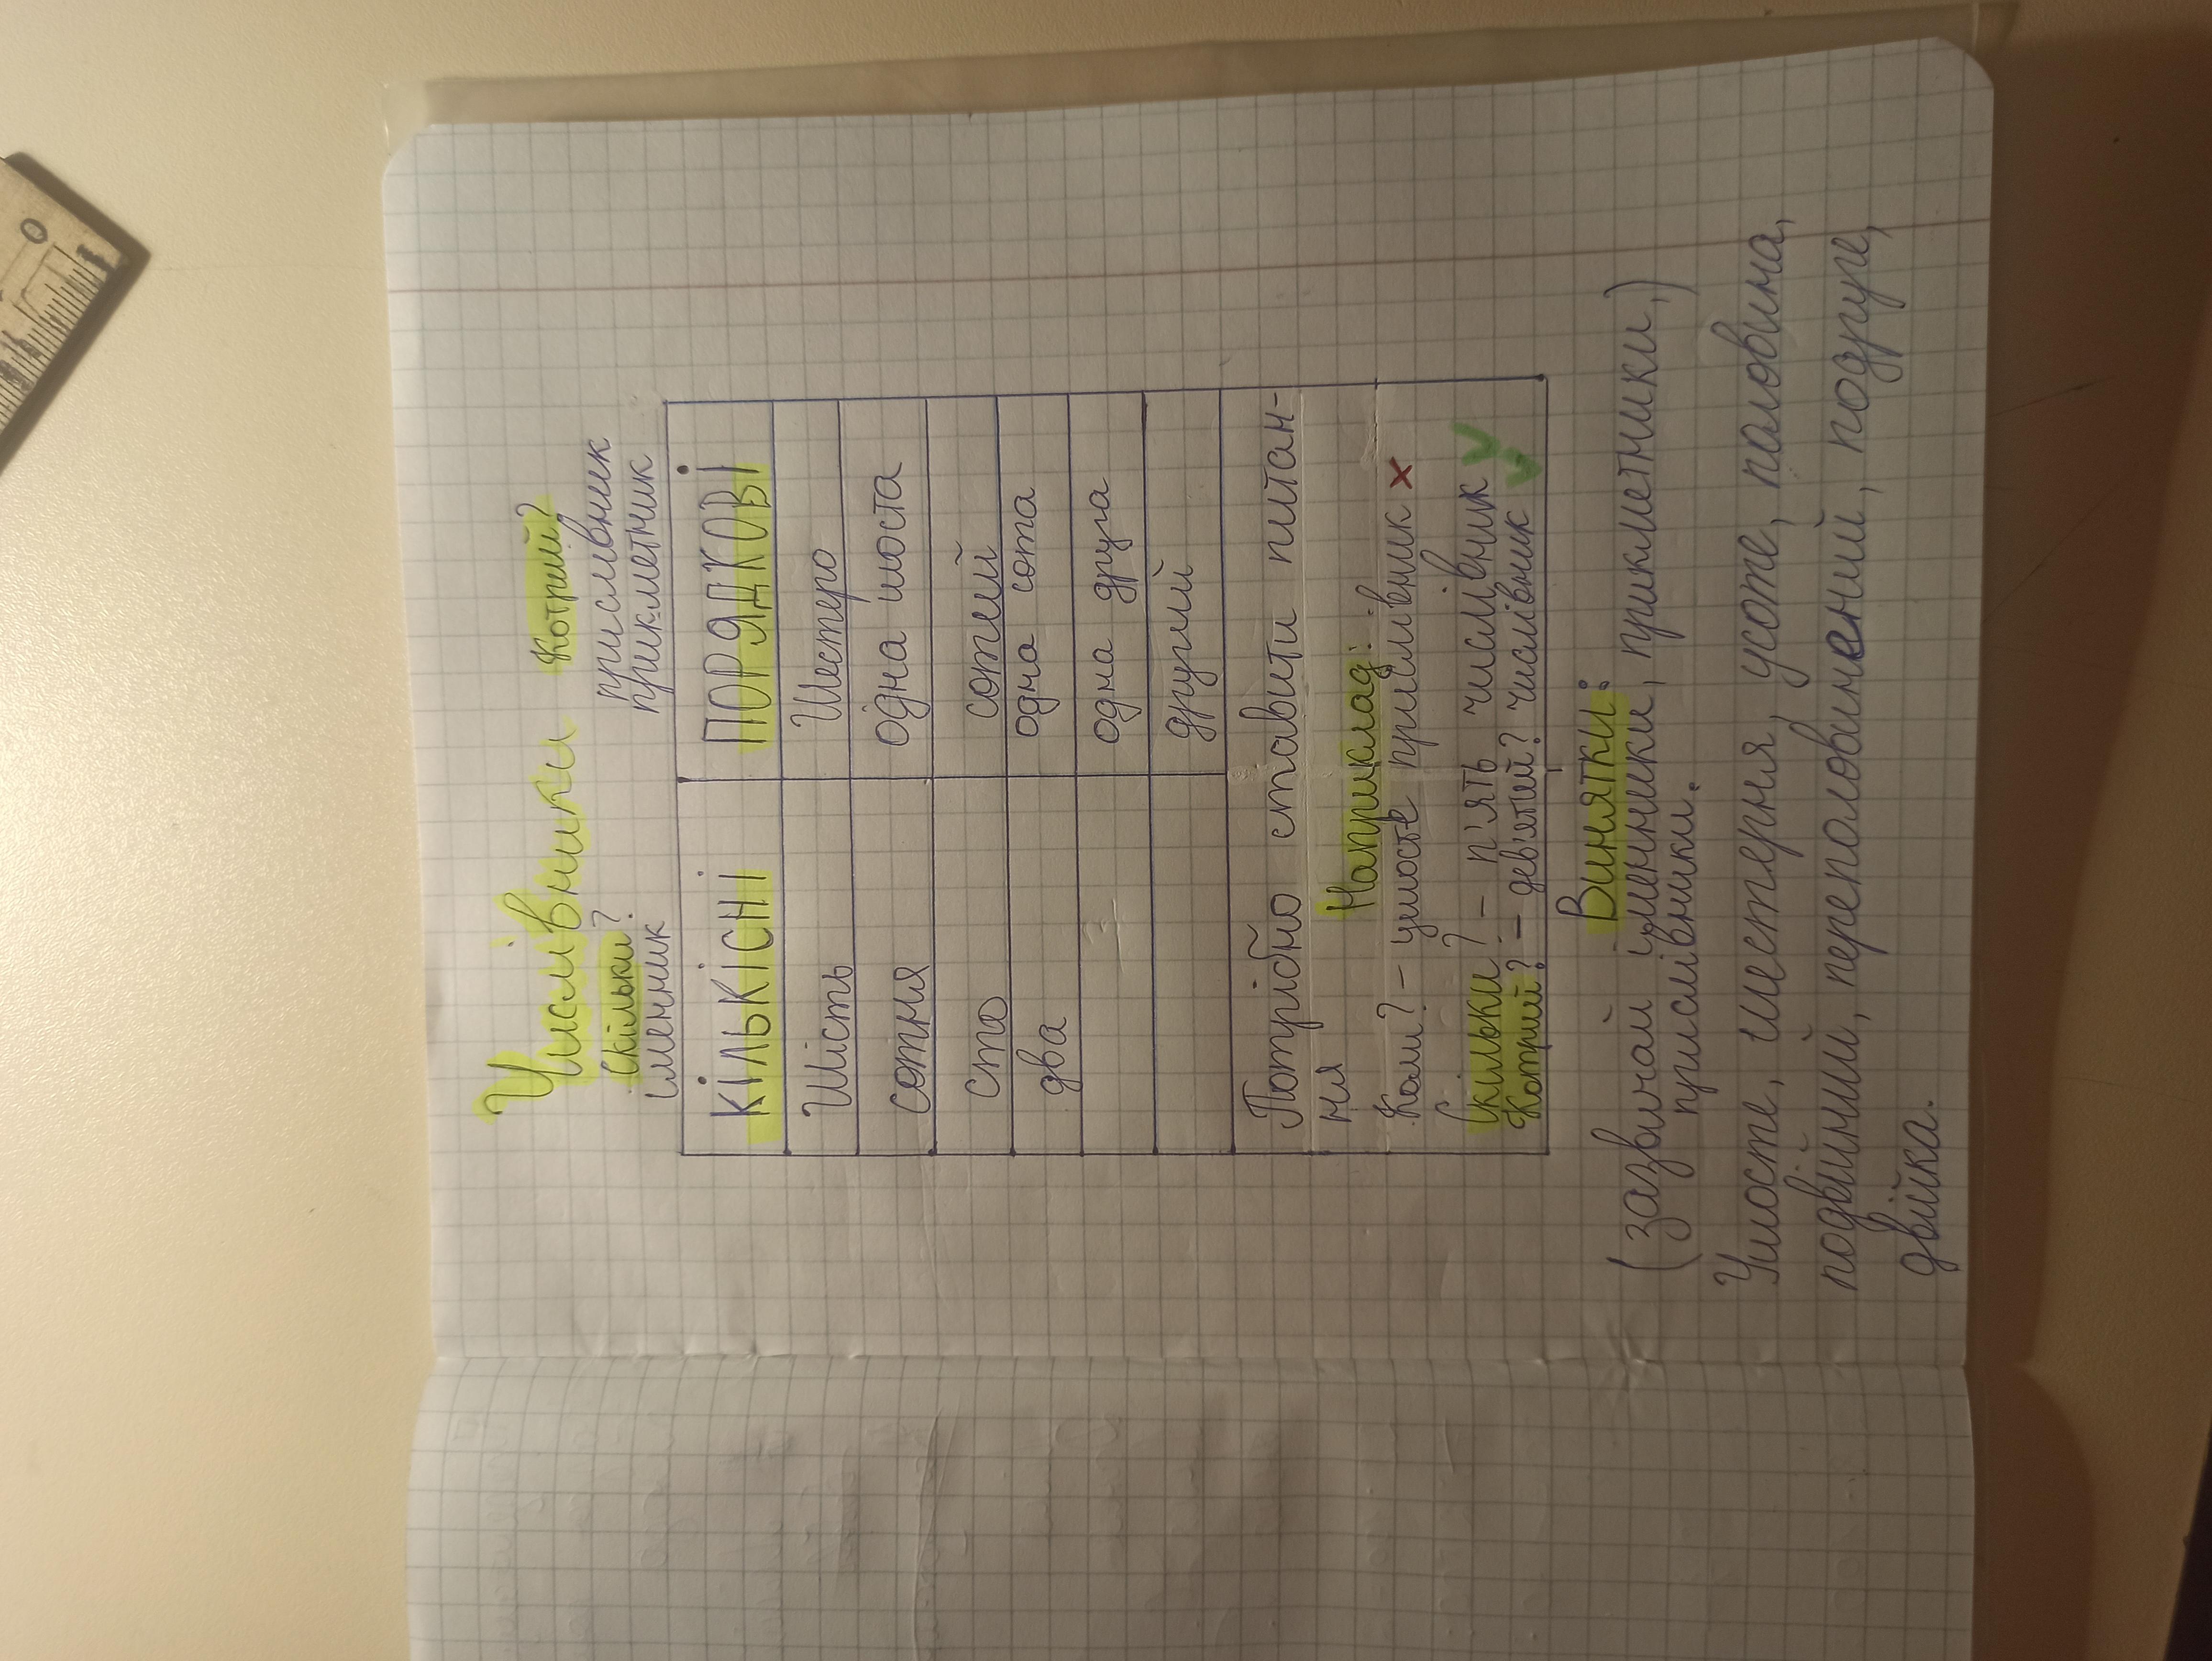 Числівники
Скільки? Котрий?
іменник прислівник
прикметник
КІЛЬКІСНІ ПОРЯДКОВІ
Шість Шестро
сотня одна шоста
сто сотий
два одна сота
одна друга
другий
Потрібно ставити питан-
ня
Наприклад:
Коли? – ушосте прислівник ×
Скільки? – п'ять числівник ✓
Котрий? – дев'ятий? числівник ✓
Винятки:
(зазвичай іменники, прикметники,)
прислівники.
Ушосте, шестерня, усоте, половина,
подвійний, переполовинений, подруге,
двійка.
0
1